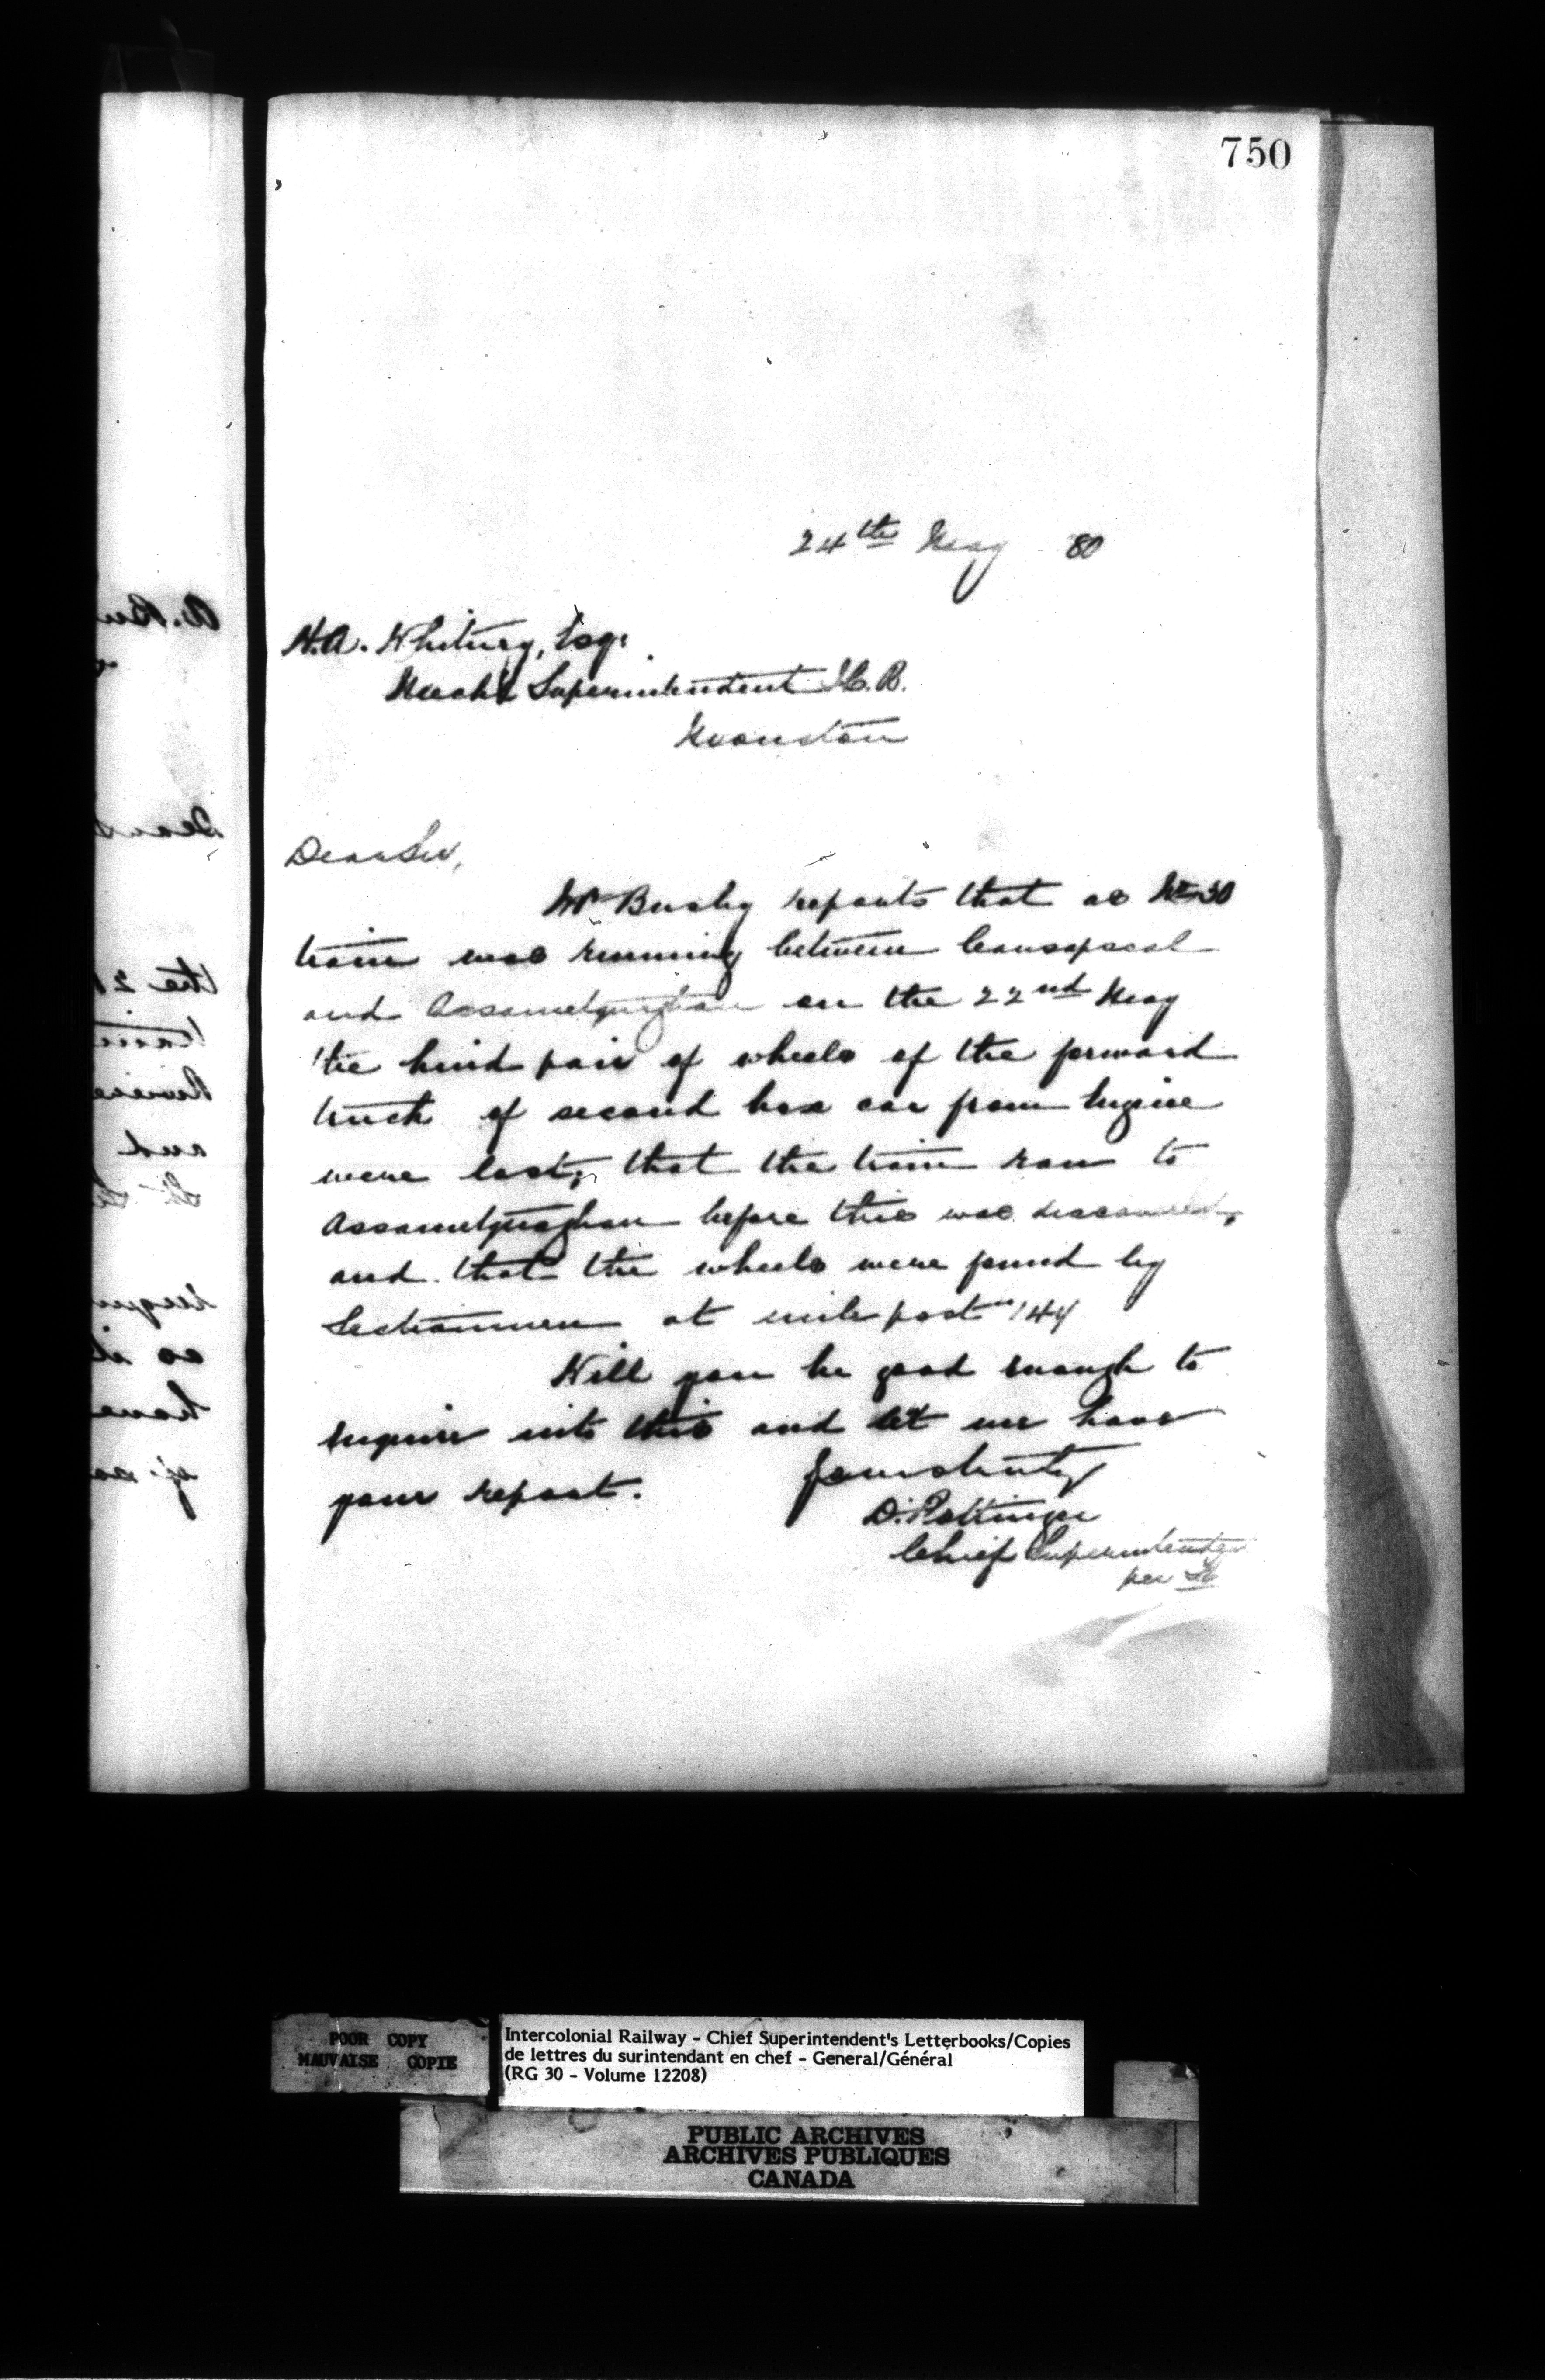 750
24th May 80
H.A. Whitney, Esq:
Mech'l Superintendent I.C.R.
Moncton
Dear Sir,
Mr Busby reports that as No 30
train was running between Causapscal
and Assametquaghan on the 22nd May
the hind pair of wheels of the forward
truck of second box car from Engine
were lost, that the train ran to
Assametquaghan before this was discovered,
and that the wheels were found by
Sectionmen at mile post 144
Will you be good enough to
enquire into this and let me have
your report.
Yours truly
D. Pottinger
Chief Superintendent
per
A. Bu
Dear S
the 21
train
and
as it
have
POOR COPY
MAUVAISE COPIE
Intercolonial Railway - Chief Superintendent's Letterbooks/Copies
de lettres du surintendant en chef - General/Général
(RG 30 - Volume 12208)
PUBLIC ARCHIVES
ARCHIVES PUBLIQUES
CANADA